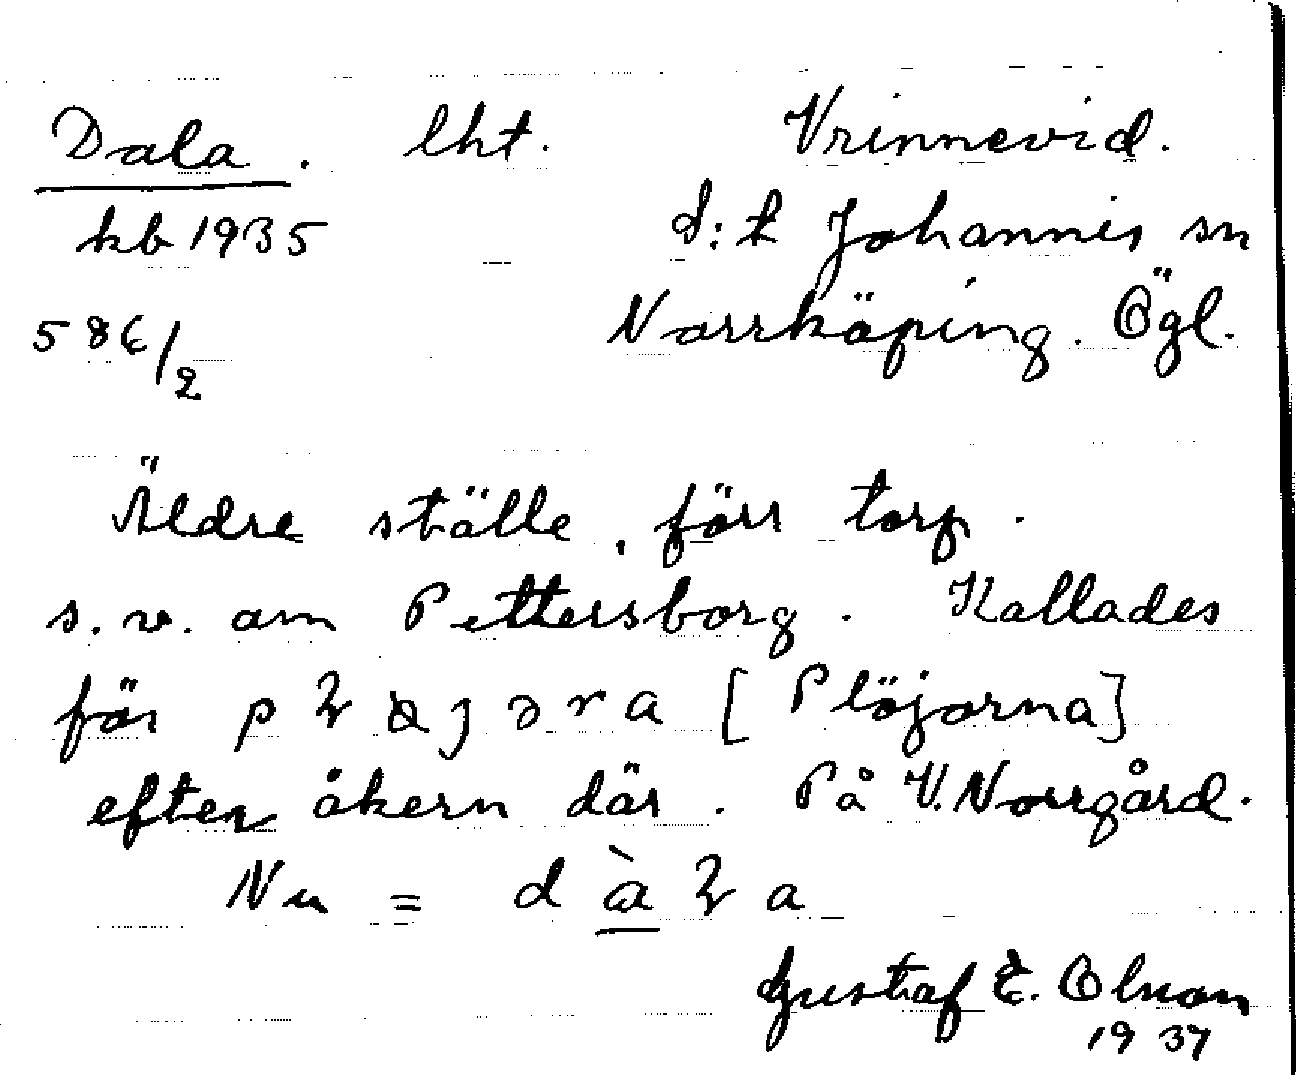 Dala. lht. Vrinnevid.
kb 1935 S:t Johannis sn
586/2 Norrköping. Ögl.
Äldre ställe, förr torp.
s.v. om Pettersborg. Kallades
för [Plöjarna]
efter åkern där. På V. Norrgård.
Nu =
Gustaf E. Olsson
1937